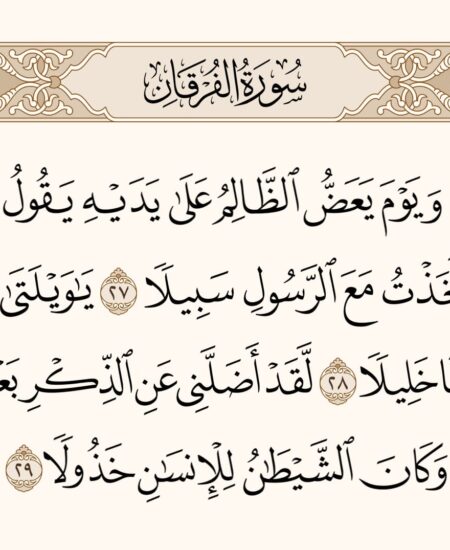 سُورَةُ الْفُرْقَانِ
وَيَوْمَ يَعَضُّ ٱلظَّالِمُ عَلَىٰ يَدَيْهِ يَقُولُ
مَعَ ٱلرَّسُولِ سَبِيلًا ٢٧ يَٰوَيْلَتَىٰ
خَلِيلًا ٢٨ لَّقَدْ أَضَلَّنِى عَنِ ٱلذِّكْرِ
وَكَانَ ٱلشَّيْطَٰنُ لِلْإِنسَٰنِ خَذُولًا ٢٩